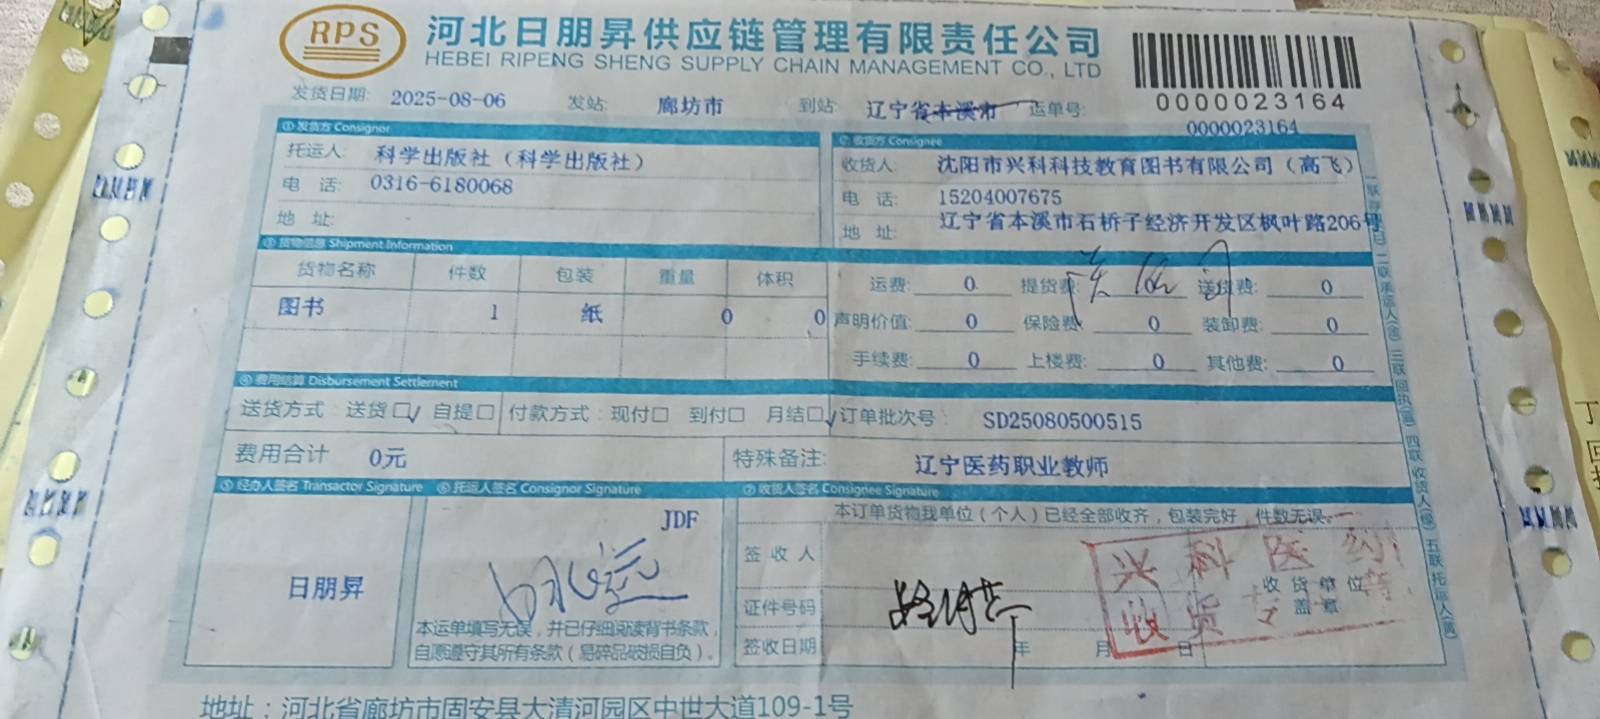 RPS 河北日朋昇供应链管理有限责任公司
HEBEI RIPENG SHENG SUPPLY CHAIN MANAGEMENT CO., LTD
0000023164
发货日期: 2025-08-06 发站: 廊坊市 到站: 辽宁省本溪市 运单号: 0000023164
①发货方 Consignor
托运人: 科学出版社（科学出版社）
电 话: 0316-6180068
地 址:
②收货方 Consignee
收货人: 沈阳市兴科科技教育图书有限公司（高飞）
电 话: 15204007675
地 址: 辽宁省本溪市石桥子经济开发区枫叶路206号
③货物信息 Shipment Information
货物名称 件数 包装 重量 体积
图书 1 纸 0 0
运费: 0 提货费: 送货费: 0
声明价值: 0 保险费: 0 装卸费: 0
手续费: 0 上楼费: 0 其他费: 0
④费用结算 Disbursement Settlement
送货方式: 送货□√ 自提□ 付款方式: 现付□ 到付□ 月结□√ 订单批次号 SD25080500515
费用合计 0元 特殊备注: 辽宁医药职业教师
⑤经办人签名 Transactor Signature ⑥托运人签名 Consignor Signature ⑦收货人签名 Consignee Signature
日朋昇
JDF
本运单填写无误，并已仔细阅读背书条款，
自愿遵守其所有条款（易碎品破损自负）。
本订单货物我单位（个人）已经全部收齐，包装完好，件数无误。
签 收 人
证件号码
签收日期 年 月 日
收 货 单 位
盖 章
兴科医药
收货专
地址：河北省廊坊市固安县大清河园区中世大道109-1号